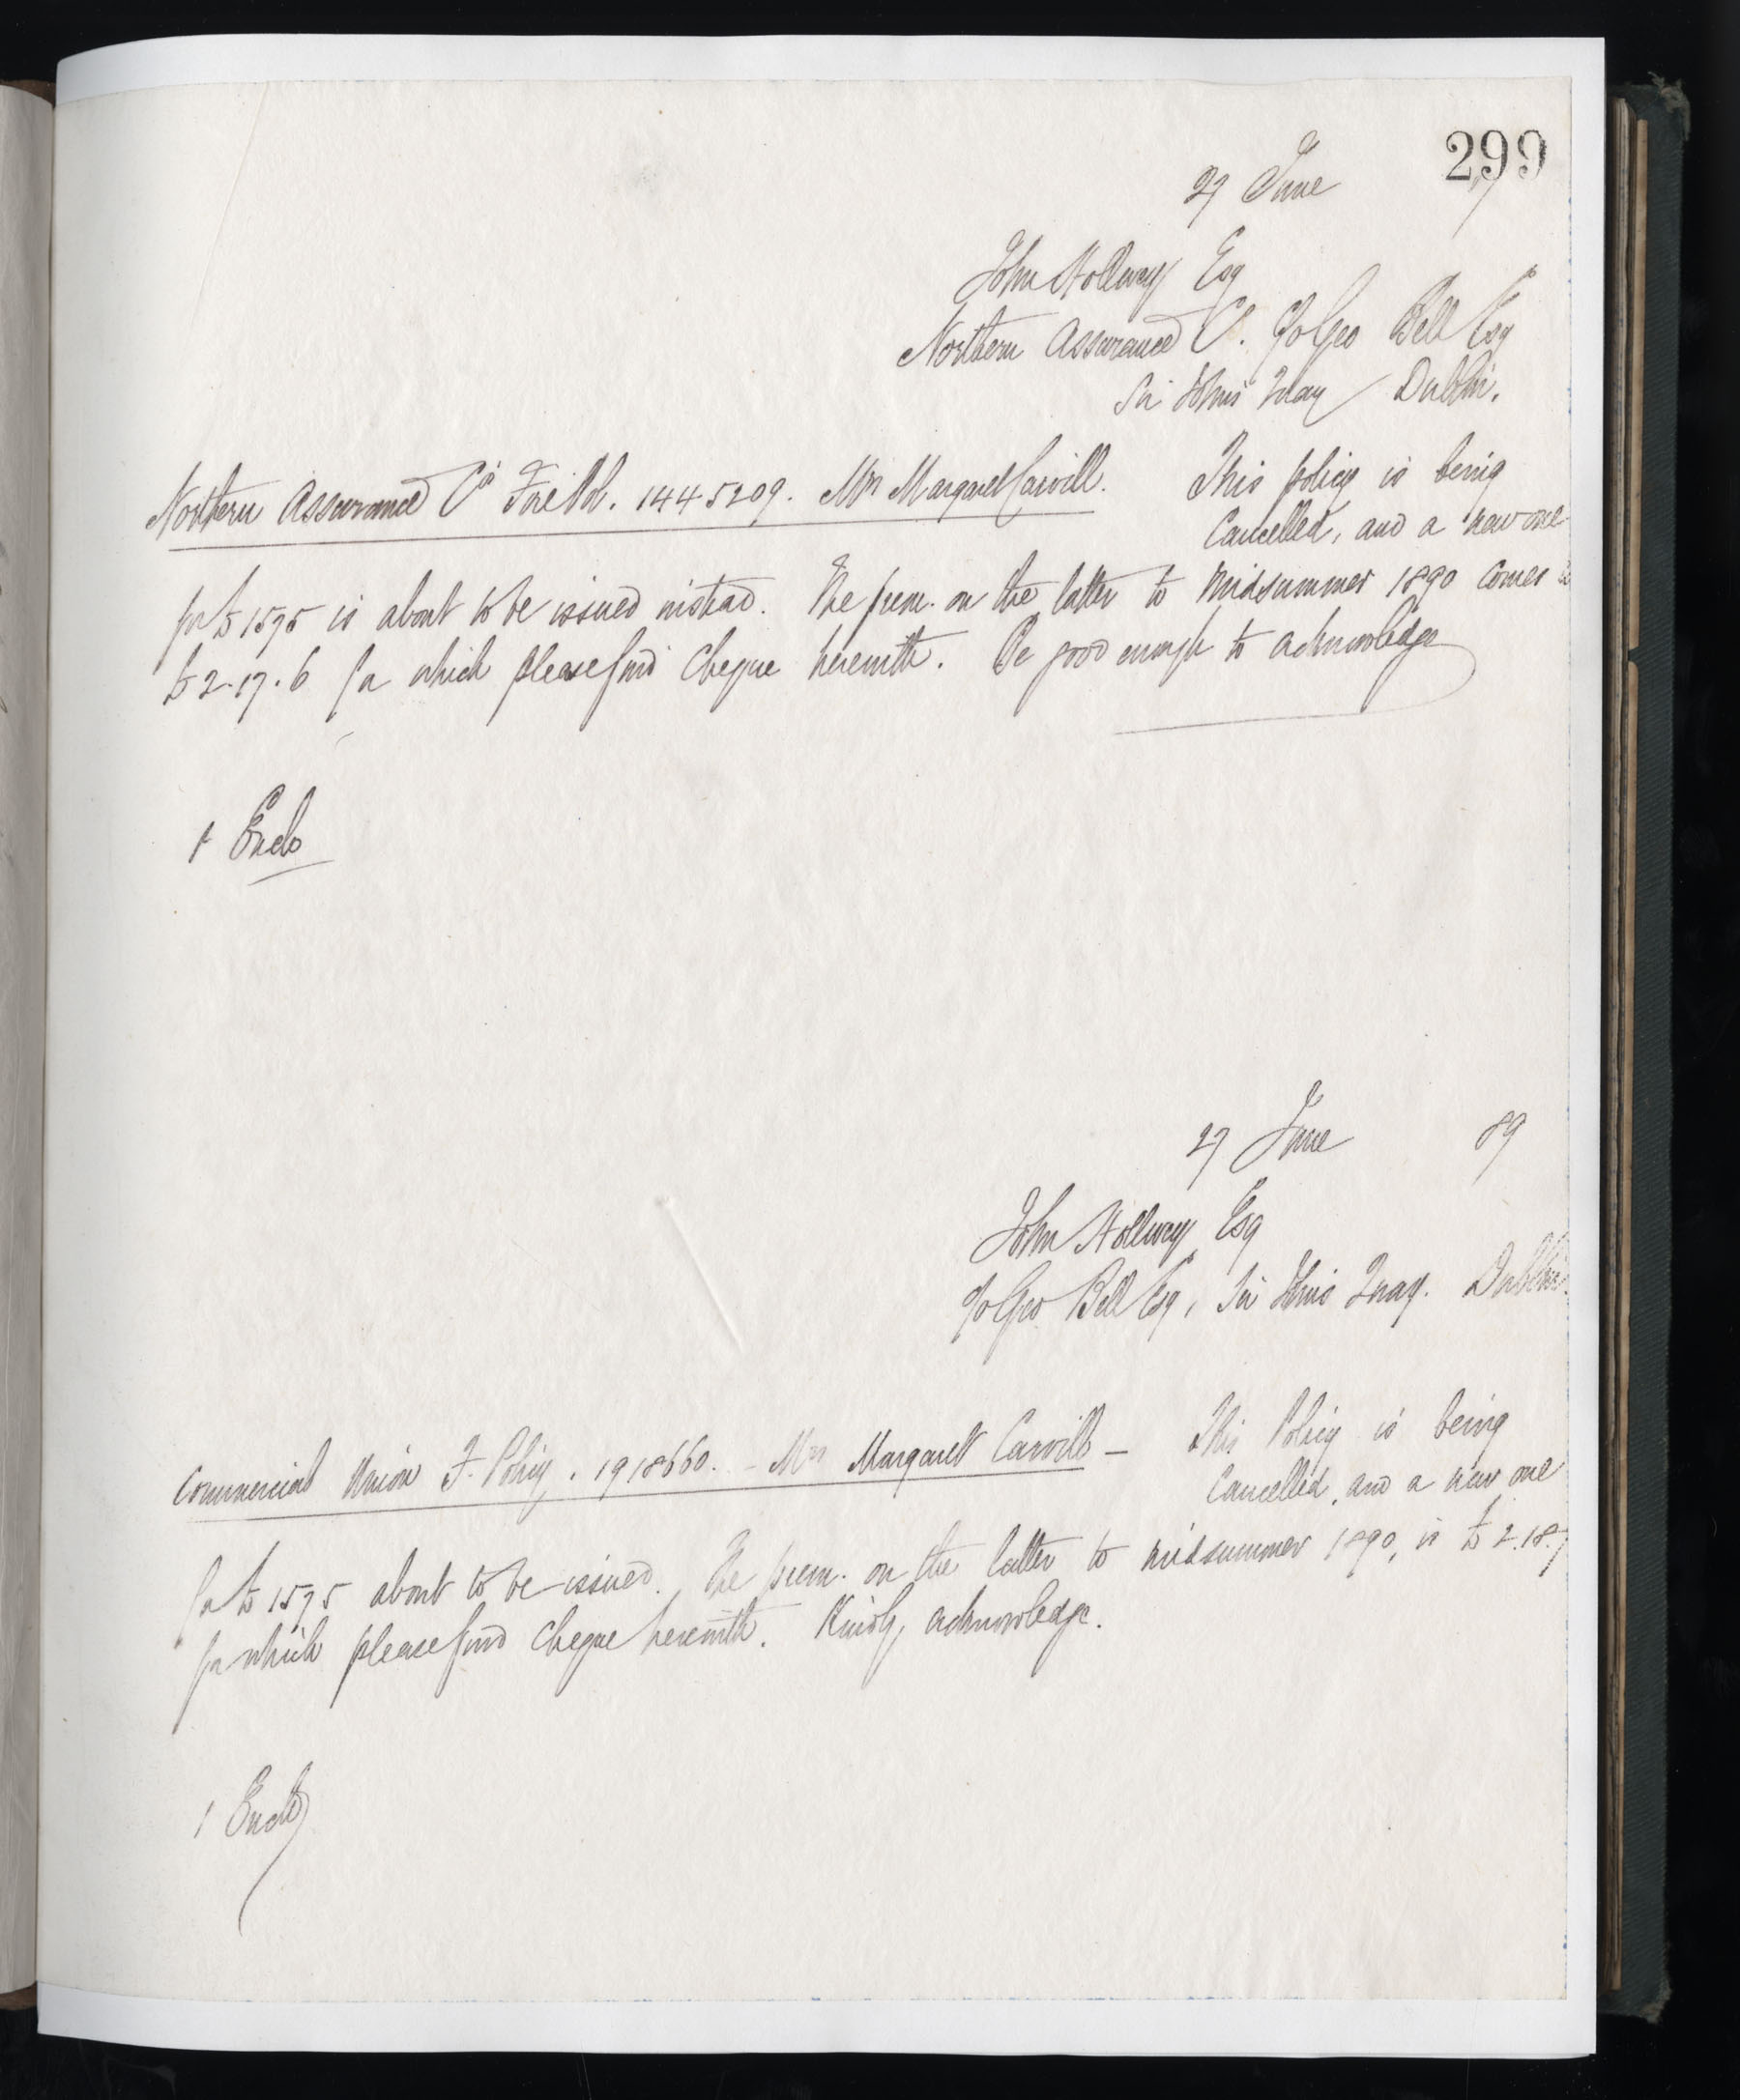 299
27 June
John Hollway Esq
Northern Assurance Co. c/o Geo Bell Esq
Sir Johns Quay Dublin.
Northern Assurance Co Fire Pol. 1445209. Mrs Margaret Carvill. This policy is being
Cancelled, and a new one
for £1575 is about to be issued instead. The prem. on the latter to Midsummer 1890 comes to
£2.17.6 for which please find Cheque herewith. Be good enough to acknowledge
1 Enclo
27 June 89
John Hollway Esq
c/o Geo Bell Esq, Sir Johns Quay. Dublin.
Commercial Union F. Policy. 1918660. - Mrs Margaret Carvill - This Policy is being
Cancelled, and a new one
for £1575 about to be issued. The prem. on the latter to midsummer 1890, is £2.18.7
for which please find Cheque herewith. Kindly acknowledge.
1 Enclo